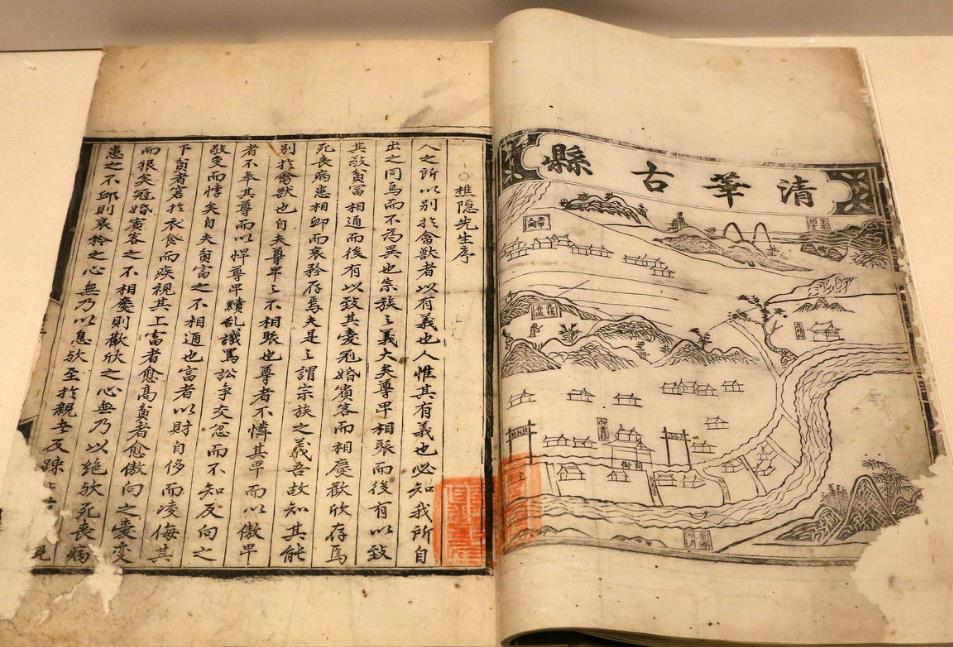 清華古縣
○樵隐先生序
人之所以別於禽獸者以有義也人惟其有義也必知我所自
出之同焉而不為異也宗族之義大矣尊卑相聚而後有以致
其敬貧富相通而後有以致其愛冠婚賓客而相慶歡欣存焉
死喪病患相卹而哀矜存焉夫是之謂宗族之義吾故知其能
別於禽獸也自夫尊卑之不相聚也尊者不憐其卑而以傲卑
者不奉其尊而以悍尊卑乱譏罵訟爭交忽而不知反向之
敬変而悖矣自夫貧富之不相通也富者以財自侈而凌侮其
下貧者窘於衣食而疾視其上富者愈高貧者愈傲向之愛変
而狠矣冠婚賓客之不相慶則歡欣之心無乃以絶欤死喪病
患之不卹則哀矜之心無乃以息欤至於親反踈